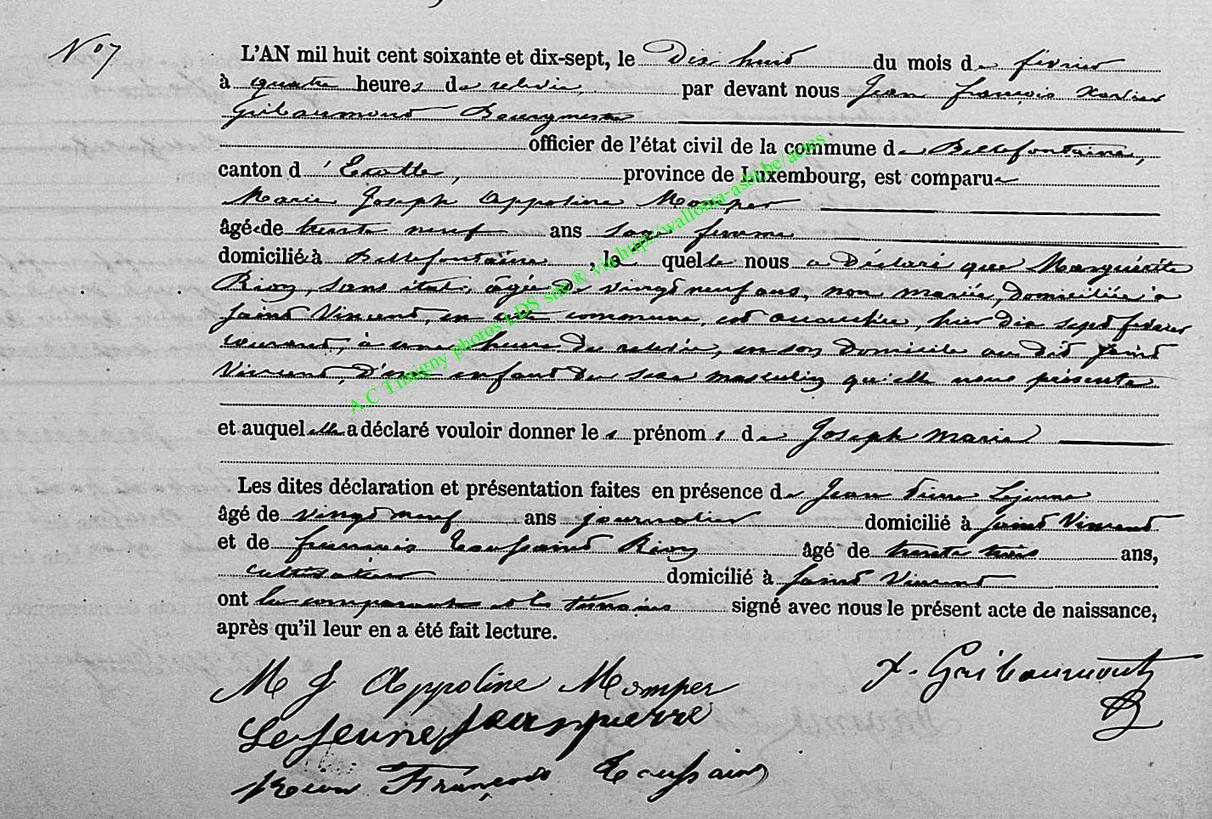 N° 7
L'AN mil huit cent soixante et dix-sept, le Dix huit du mois de février
à quatre heures de relevée par devant nous Jean françois Xavier
Gribaumont Bourgmestre
officier de l'état civil de la commune de Bellefontaine,
canton d'Etalle, province de Luxembourg, est comparue
Marie Joseph Appoline Momper
âgée de trente neuf ans sage femme
domiciliée à Bellefontaine, la quelle nous a Déclaré que Marguérite
Rion, sans état, agée de vingt neuf ans, non mariée, domiciliée à
Saint Vincent, en cette commune, est accouchée, hier dix sept février
courant, à une heure de relevée, en son Domicile au dit Saint
Vincent, d'un enfant du sexe masculin qu'elle nous présente
et auquel elle a déclaré vouloir donner les prénoms de Joseph Marie
Les dites déclaration et présentation faites en présence de Jean Pierre Lejeune
âgé de vingt neuf ans journalier domicilié à Saint Vincent
et de francois Toussaint Rion âgé de trente trois ans,
cultivateur domicilié à Saint Vincent
ont la comparante et les témoins signé avec nous le présent acte de naissance,
après qu'il leur en a été fait lecture.
M J Appoline Momper X. Gribaumont
LeJeune Jean pierre
Rion François Toussaint
A.C Tintigny photos LDS site ® via http/wallonia-asbl.be/actes